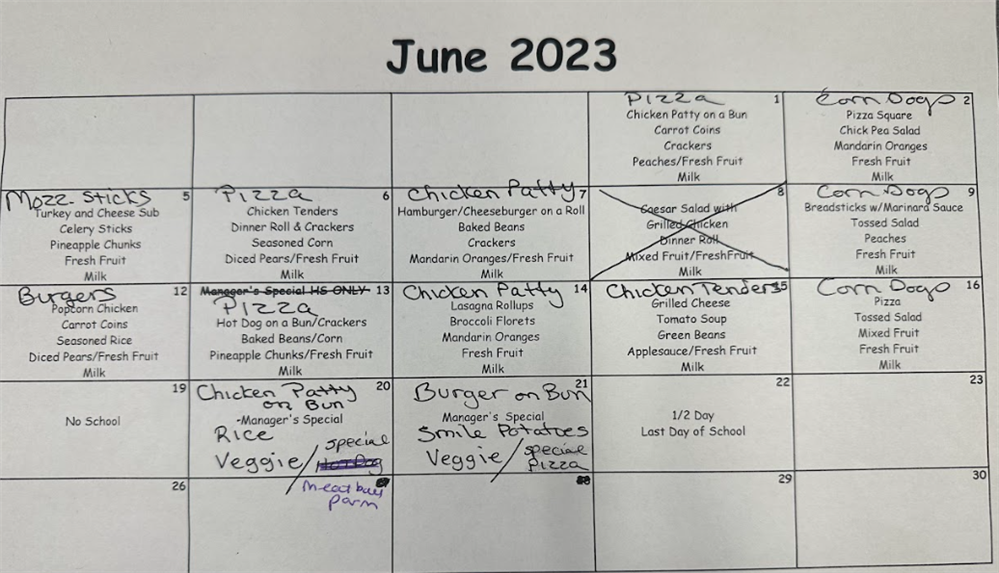 June 2023
Pizza 1
Chicken Patty on a Bun
Carrot Coins
Crackers
Peaches/Fresh Fruit
Milk
Corn Dogs 2
Pizza Square
Chick Pea Salad
Mandarin Oranges
Fresh Fruit
Milk
Mozz. Sticks 5
Turkey and Cheese Sub
Celery Sticks
Pineapple Chunks
Fresh Fruit
Milk
Pizza 6
Chicken Tenders
Dinner Roll & Crackers
Seasoned Corn
Diced Pears/Fresh Fruit
Milk
Chicken Patty 7
Hamburger/Cheeseburger on a Roll
Baked Beans
Crackers
Mandarin Oranges/Fresh Fruit
Milk
8
Caesar Salad with
Grilled Chicken
Dinner Roll
Mixed Fruit/FreshFruit
Milk
Corn Dogs 9
Breadsticks w/Marinara Sauce
Tossed Salad
Peaches
Fresh Fruit
Milk
Burgers 12
Popcorn Chicken
Carrot Coins
Seasoned Rice
Diced Pears/Fresh Fruit
Milk
Manager's Special HS ONLY 13
Pizza
Hot Dog on a Bun/Crackers
Baked Beans/Corn
Pineapple Chunks/Fresh Fruit
Milk
Chicken Patty 14
Lasagna Rollups
Broccoli Florets
Mandarin Oranges
Fresh Fruit
Milk
Chicken Tenders 15
Grilled Cheese
Tomato Soup
Green Beans
Applesauce/Fresh Fruit
Milk
Corn Dogs 16
Pizza
Tossed Salad
Mixed Fruit
Fresh Fruit
Milk
19
No School
Chicken Patty 20
on Bun
-Manager's Special
Rice
Veggie / special
Hot Dog
meatball
Parm
21
Burger on Bun
Manager's Special
Smile Potatoes
Veggie / special
Pizza
22
1/2 Day
Last Day of School
23
26
29
30